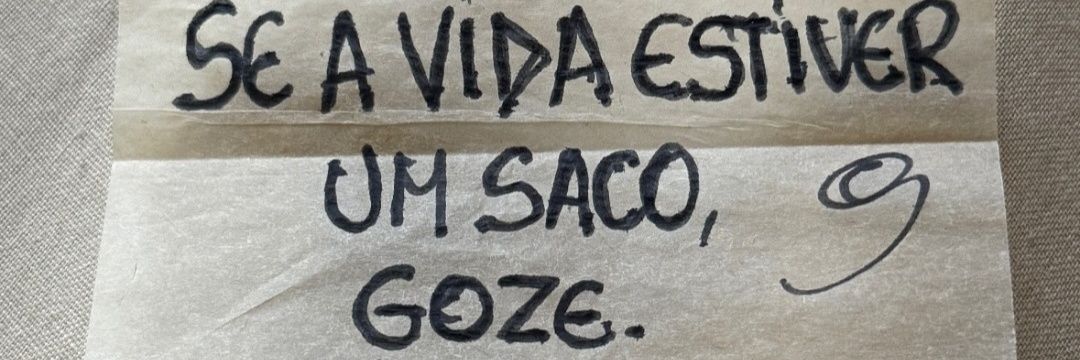 SE A VIDA ESTIVER
UM SACO,
GOZE.